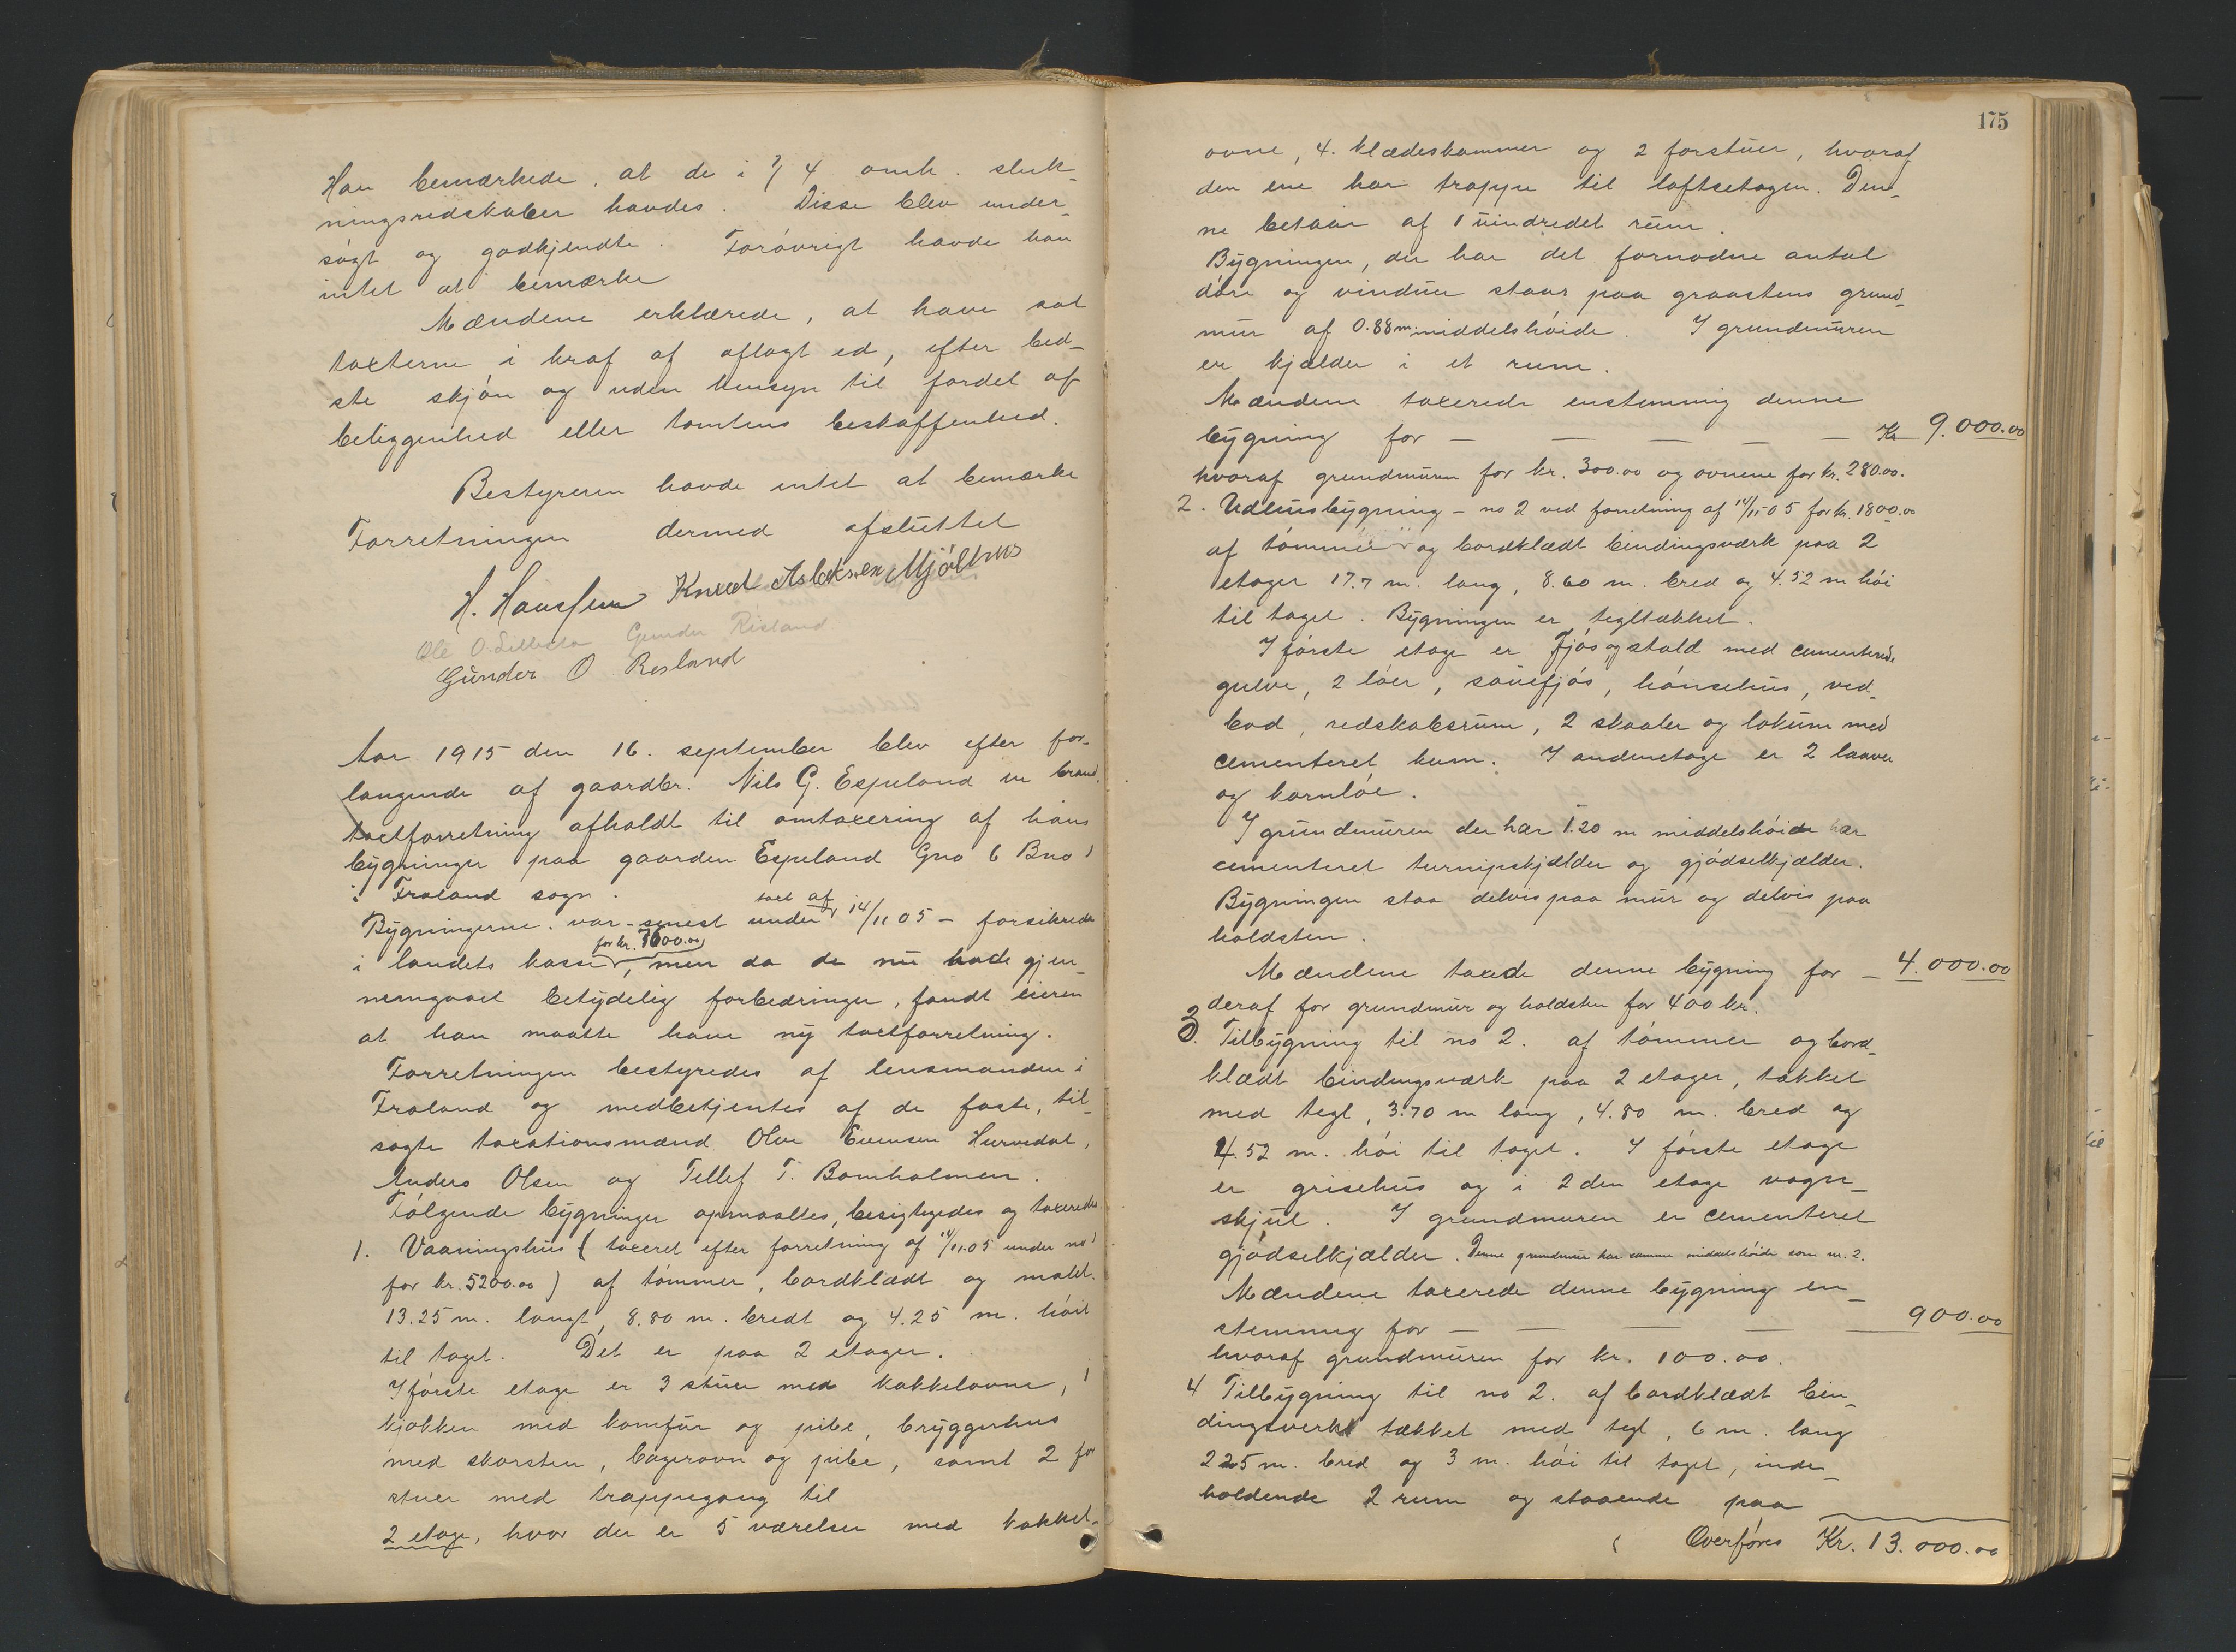 Han bemærkede, at de i § 4 omh. sluk-
ningsredskaber havdes. Disse blev under-
søgt og godkjendte. Forøvrigt havde han
intet at bemærke
Mændene erklærede, at have sat
taxterne i kraf af aflagt ed, efter bed-
ste skjøn og uden hensyn til fordel af
beliggenhed eller tomtens beskaffenhed.
Bestyreren havde intet at bemærke
Forretningen dermed afsluttet
H. Haussen Knud Aslaksen Mjölhus
Ole O. Gunder Risland
Gunder O Resland
Aar 1915 den 16. september blev efter for-
langende af gaardbr. Nils G. Espeland en brand-
taxtforretning afholdt til omtaxering af hans
bygninger paa gaarden Espeland Gno 6 Bno 1
i Froland sogn.
Bygningerne var senest under taxt af 14/11 05 – forsikrede
i landets kasse for kr. 7600.00, men da de nu hade gjen-
nemgaaet betydelig forbedringer, fandt eieren
at han maatte have ny taxtforretning.
Forretningen bestyredes af lensmanden i
Froland og medbetjentes af de faste, til-
sagte taxationsmænd Olve Evensen Hurvedal,
Anders Olsen og Tellef T. Bomholmen.
Følgende bygninger opmaaltes, besigtigedes og taxeredes
1. Vaaningshus (taxeret efter forretning af 14/11.05 under no 1
for kr. 5200.00) af tømmer, bordklædt og malet.
13.25 m. langt, 8.80 m. bredt og 4.25 m. høit
til taget. Det er paa 2 etager.
I første etage er 3 stuer med kakkelovne, 1
kjøkken med komfur og pibe, bryggerhus
med skorsten, bagerovn og pibe, samt 2 for
stuer med trappegang til
2 etage, hvor der er 5 værelser med kakkel-
175
ovne, 4. klædeskammer og 2 forstuer, hvoraf
den ene har trappe til loftsetagen. Den-
ne bestaar af 1 uindredet rum.
Bygningen, der har det fornødne antal
døre og vinduer staar paa graastens grund-
mur af 0.88 m. middelshøide. I grundmuren
er kjælder i et rum.
Mændene taxerede enstemmig denne
bygning for — — — — — Kr 9.000.00
hvoraf grundmuren for kr. 300.00 og ovnene for kr. 280.00.
2. Udhusbygning – no 2 ved forretning af 14/11-05 for kr. 1800.00
af tømmer og bordklædt bindingsværk paa 2
etager 17.7 m. lang, 8.60 m. bred og 4.52 m høi
til taget. Bygningen er tegltækket.
I første etage er Fjøs og stald med cementerede
gulve, 2 løer, sauefjøs, hønsehus, ved-
bod, redskabsrum, 2 skaaler og lokum med
cementeret kum. I andenetage er 2 laaver
og kornløe.
I grundmuren der har 1.20 m middelshøide har
cementeret turnipskjælder og gjødselkjælder.
Bygningen staa delvis paa mur og delvis paa
holdsten.
Mændene taxede denne bygning for – 4.000.00
deraf for grundmur og holdsten for 400 kr.
3. Tilbygning til no 2. af tømmer og bord-
klædt bindingsværk paa 2 etager, tækket
med tegl, 3.70 m lang, 4.80 m. bred og
4.52 m. høi til taget. I første etage
er grisehus og i 2den etage vogn-
skjul. I grundmuren er cementeret
gjødselkjælder. Denne grundmur har samme middelshøide som nr. 2.
Mændene taxerede denne bygning en-
stemmig for — — — — 900.00
hvoraf grundmuren for kr. 100.00.
4 Tilbygning til no 2. af bordklædt bin-
dingsverk tækket med tegl, 6 m. lang
2.25 m. bred og 3 m. høi til taget, inde-
holdende 2 rum og staaende paa
Overføres Kr. 13.000.00